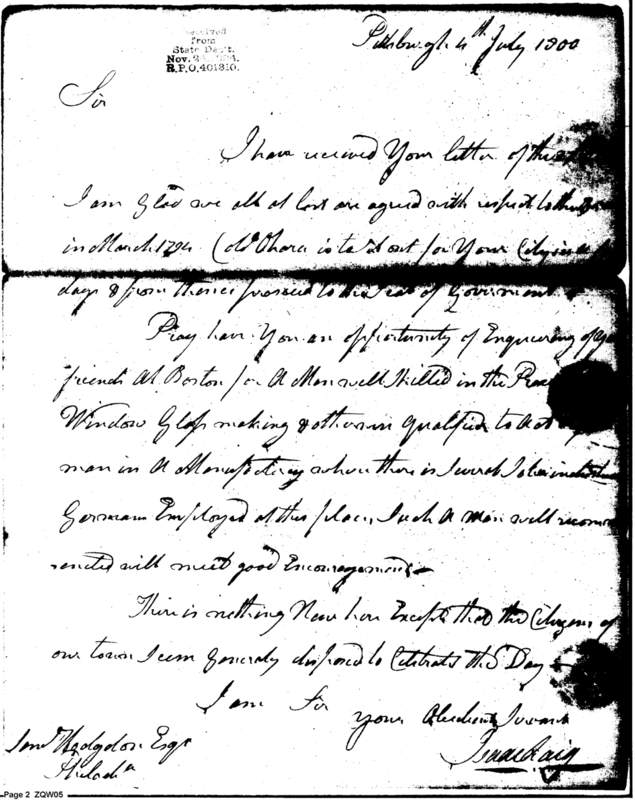 Received
from
State Dep't.
Nov. 24, 1904.
R.P.O. 401310.
Pittsburgh 4th July 1800
Sir
I have received Your letter of the
I am Glad we all at last are agreed with respect to the
in March 1794 Col. Ohara is to set out for Your City in
days & from thence proceed to the Seat of Goverment
Pray have You an opportunity of Enquiering of Your
friends At Boston for A Man well Skilled in the
Window Glass making & otherwise qualified to Act
man in A Manufactory where there is Several
Germans Employed at this place, Such A Man well recom
mended will meet good Encouragement
There is nothing New here Except that the Citizens of
our town Seem generaly disposed to Celebrate this Day
I am Sir
your Obedient Servant
Isaac Craig
Saml. Hodgdon Esqr
Philada
Page 2 ZQW05